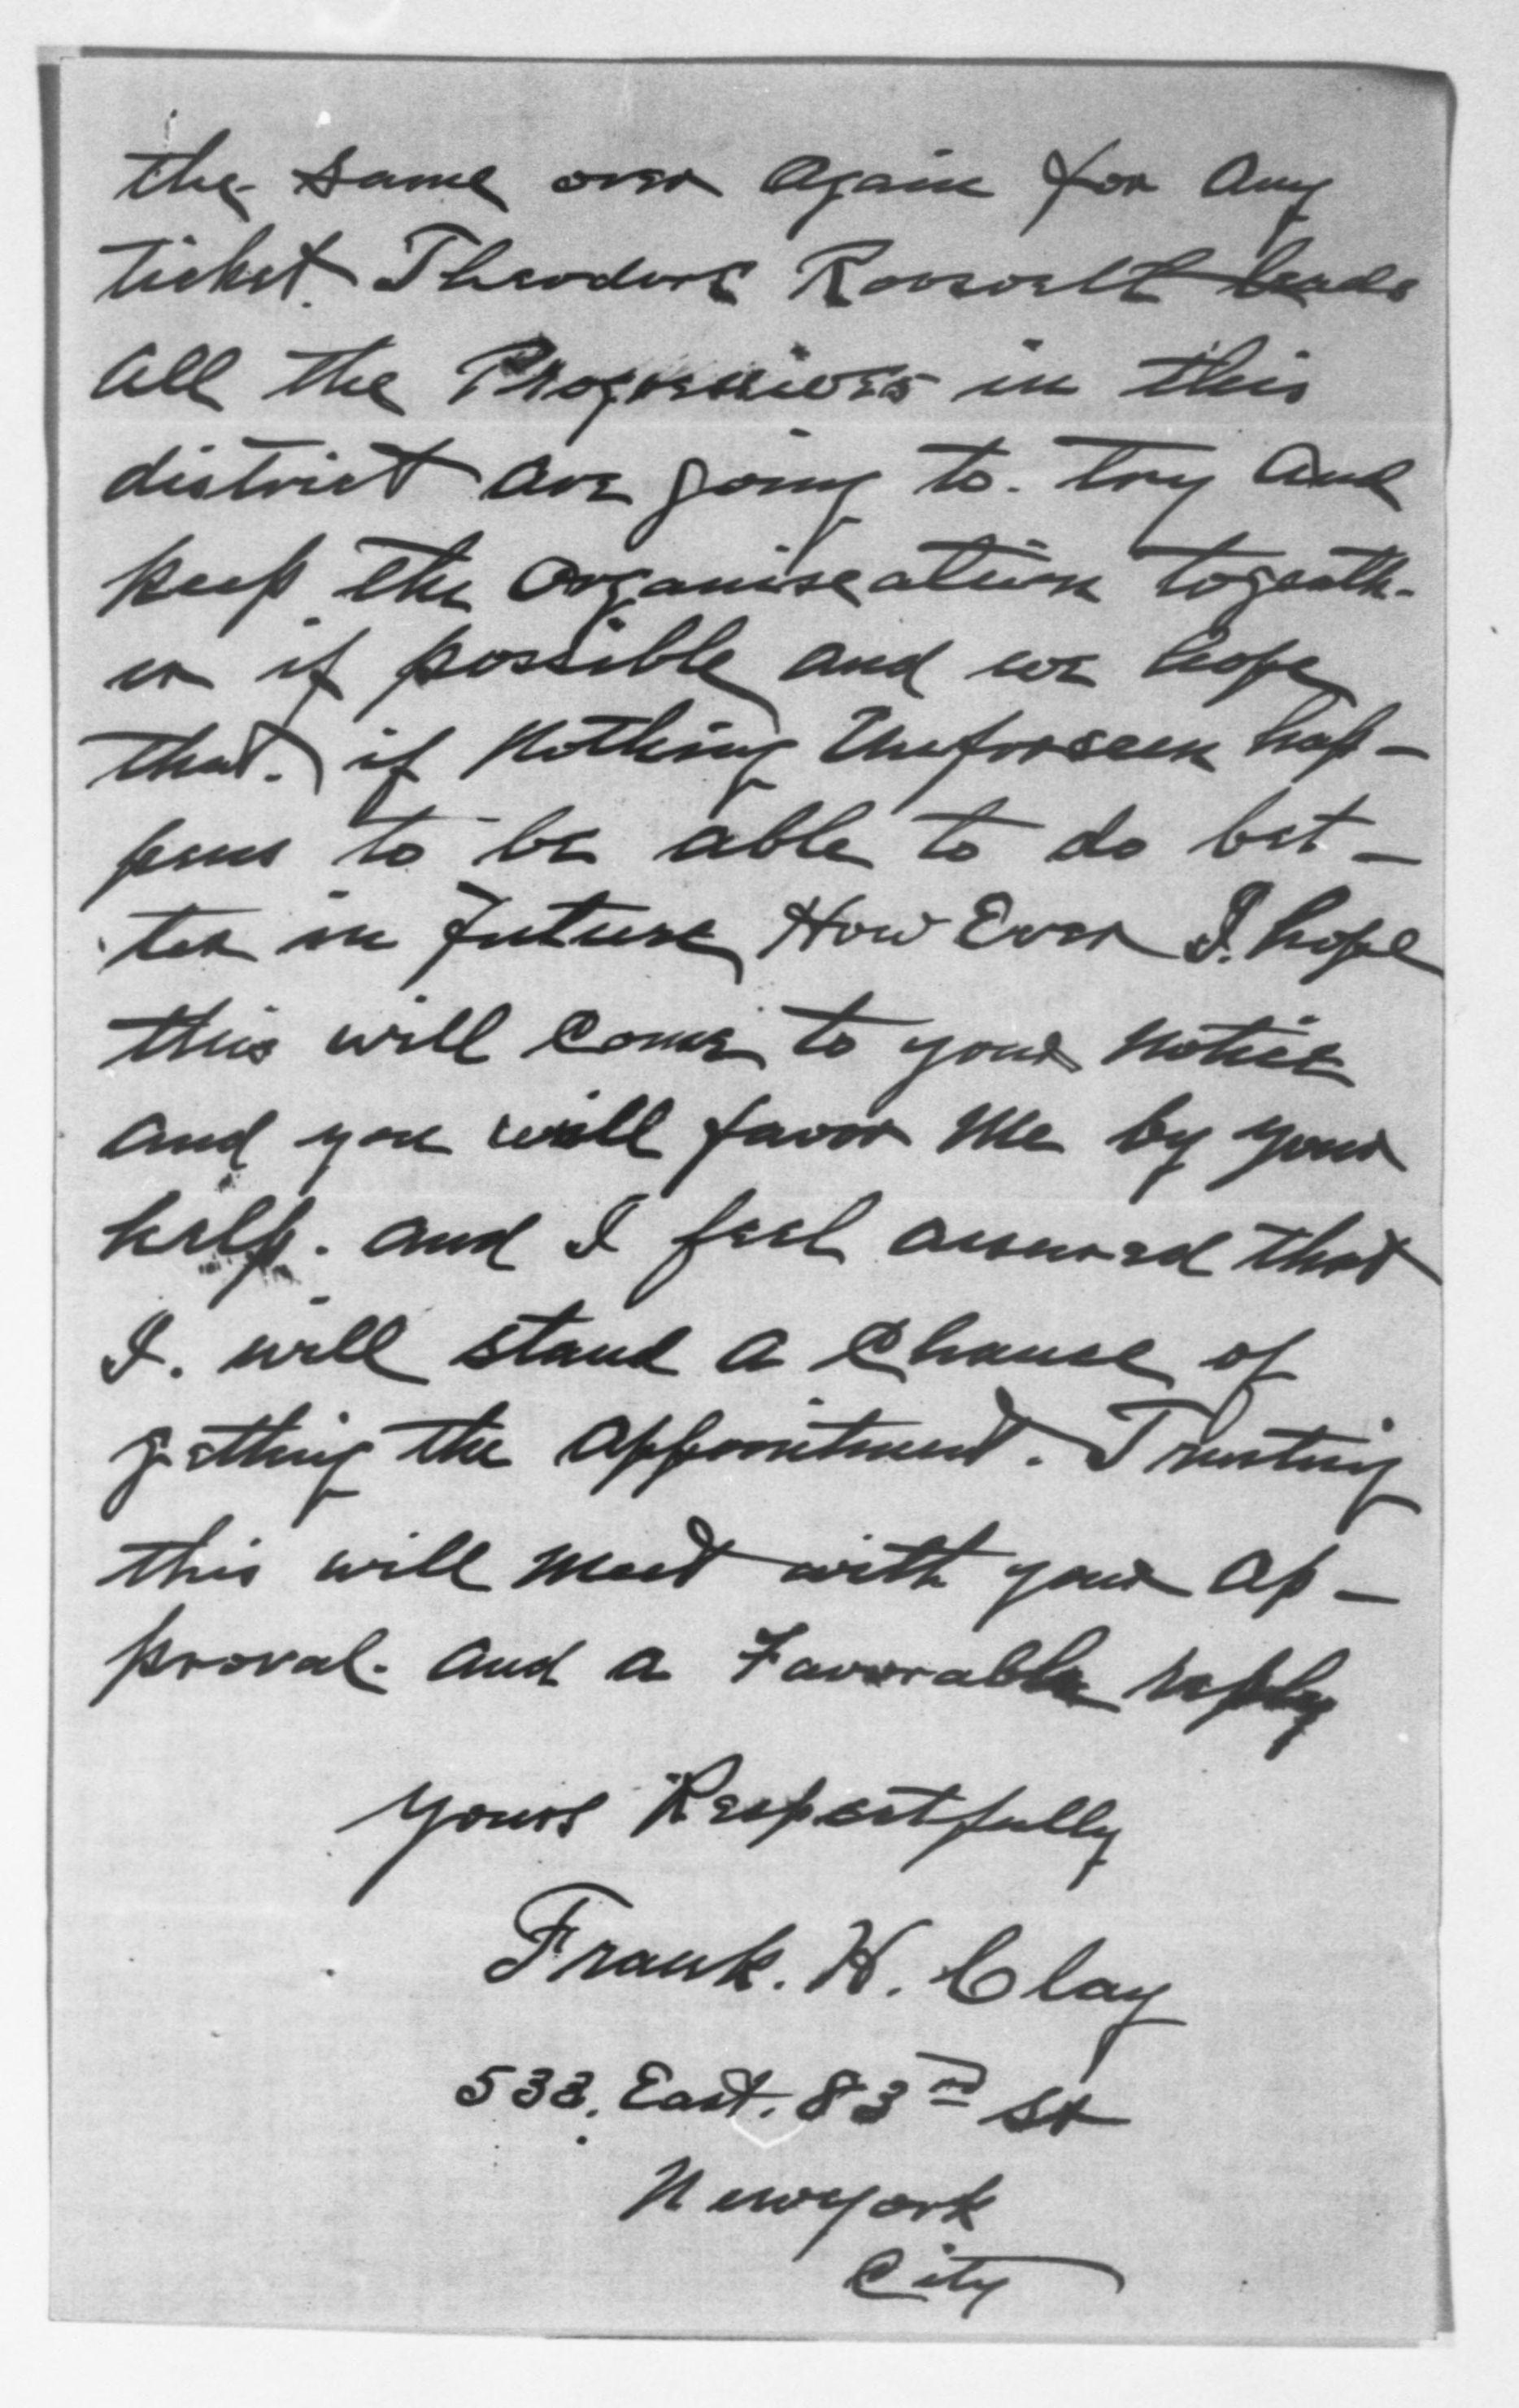 the same over again for any
ticket. Theodore Roosevelt leads
all the Progressives in this
district are going to. try and
keep the organiseation togeath-
er if possible and we hope
that. if nothing Unforseen hap-
pens to be able to do bet-
ter in Future How Ever I. hope
this will Come to your notice
and you will favor me by your
help. and I feel assured that
I. will stand a Chance of
getting the appointment. Trusting
this will meet with your ap-
proval. and a Favorable reply
yours Respectfully
Frank. H. Clay
533. East. 83rd St
Newyork
City